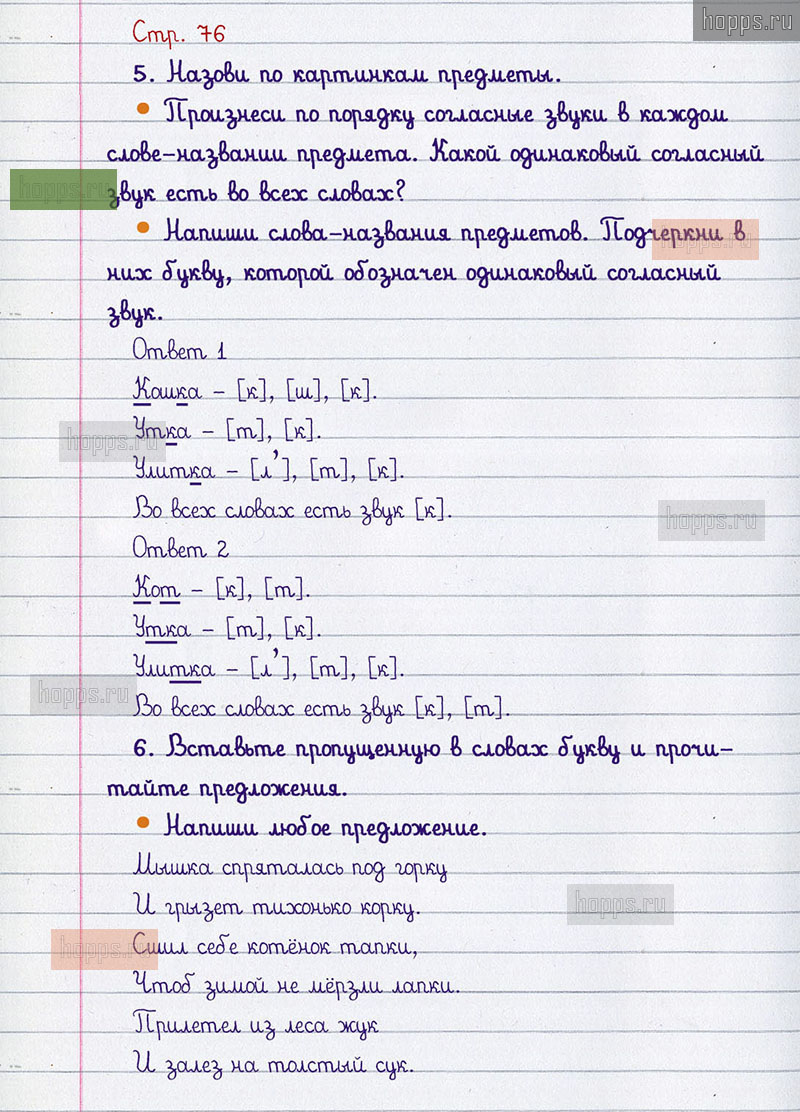 hopps.ru
Стр. 76
5. Назови по картинкам предметы.
• Произнеси по порядку согласные звуки в каждом
слове-названии предмета. Какой одинаковый согласный
hopps.ru
звук есть во всех словах?
• Напиши слова-названия предметов. Подчеркни в
hopps.ru
них букву, которой обозначен одинаковый согласный
звук.
Ответ 1
Кошка – [к], [ш], [к].
Утка – [т], [к].
hopps.ru
Улитка – [л’], [т], [к].
Во всех словах есть звук [к].
hopps.ru
Ответ 2
Кот – [к], [т].
Утка – [т], [к].
Улитка – [л’], [т], [к].
hopps.ru
Во всех словах есть звук [к], [т].
6. Вставьте пропущенную в словах букву и прочи-
тайте предложения.
• Напиши любое предложение.
Мышка спряталась под горку
И грызет тихонько корку.
hopps.ru
Сшил себе котёнок тапки,
hopps.ru
Чтоб зимой не мёрзли лапки.
Прилетел из леса жук
И залез на толстый сук.